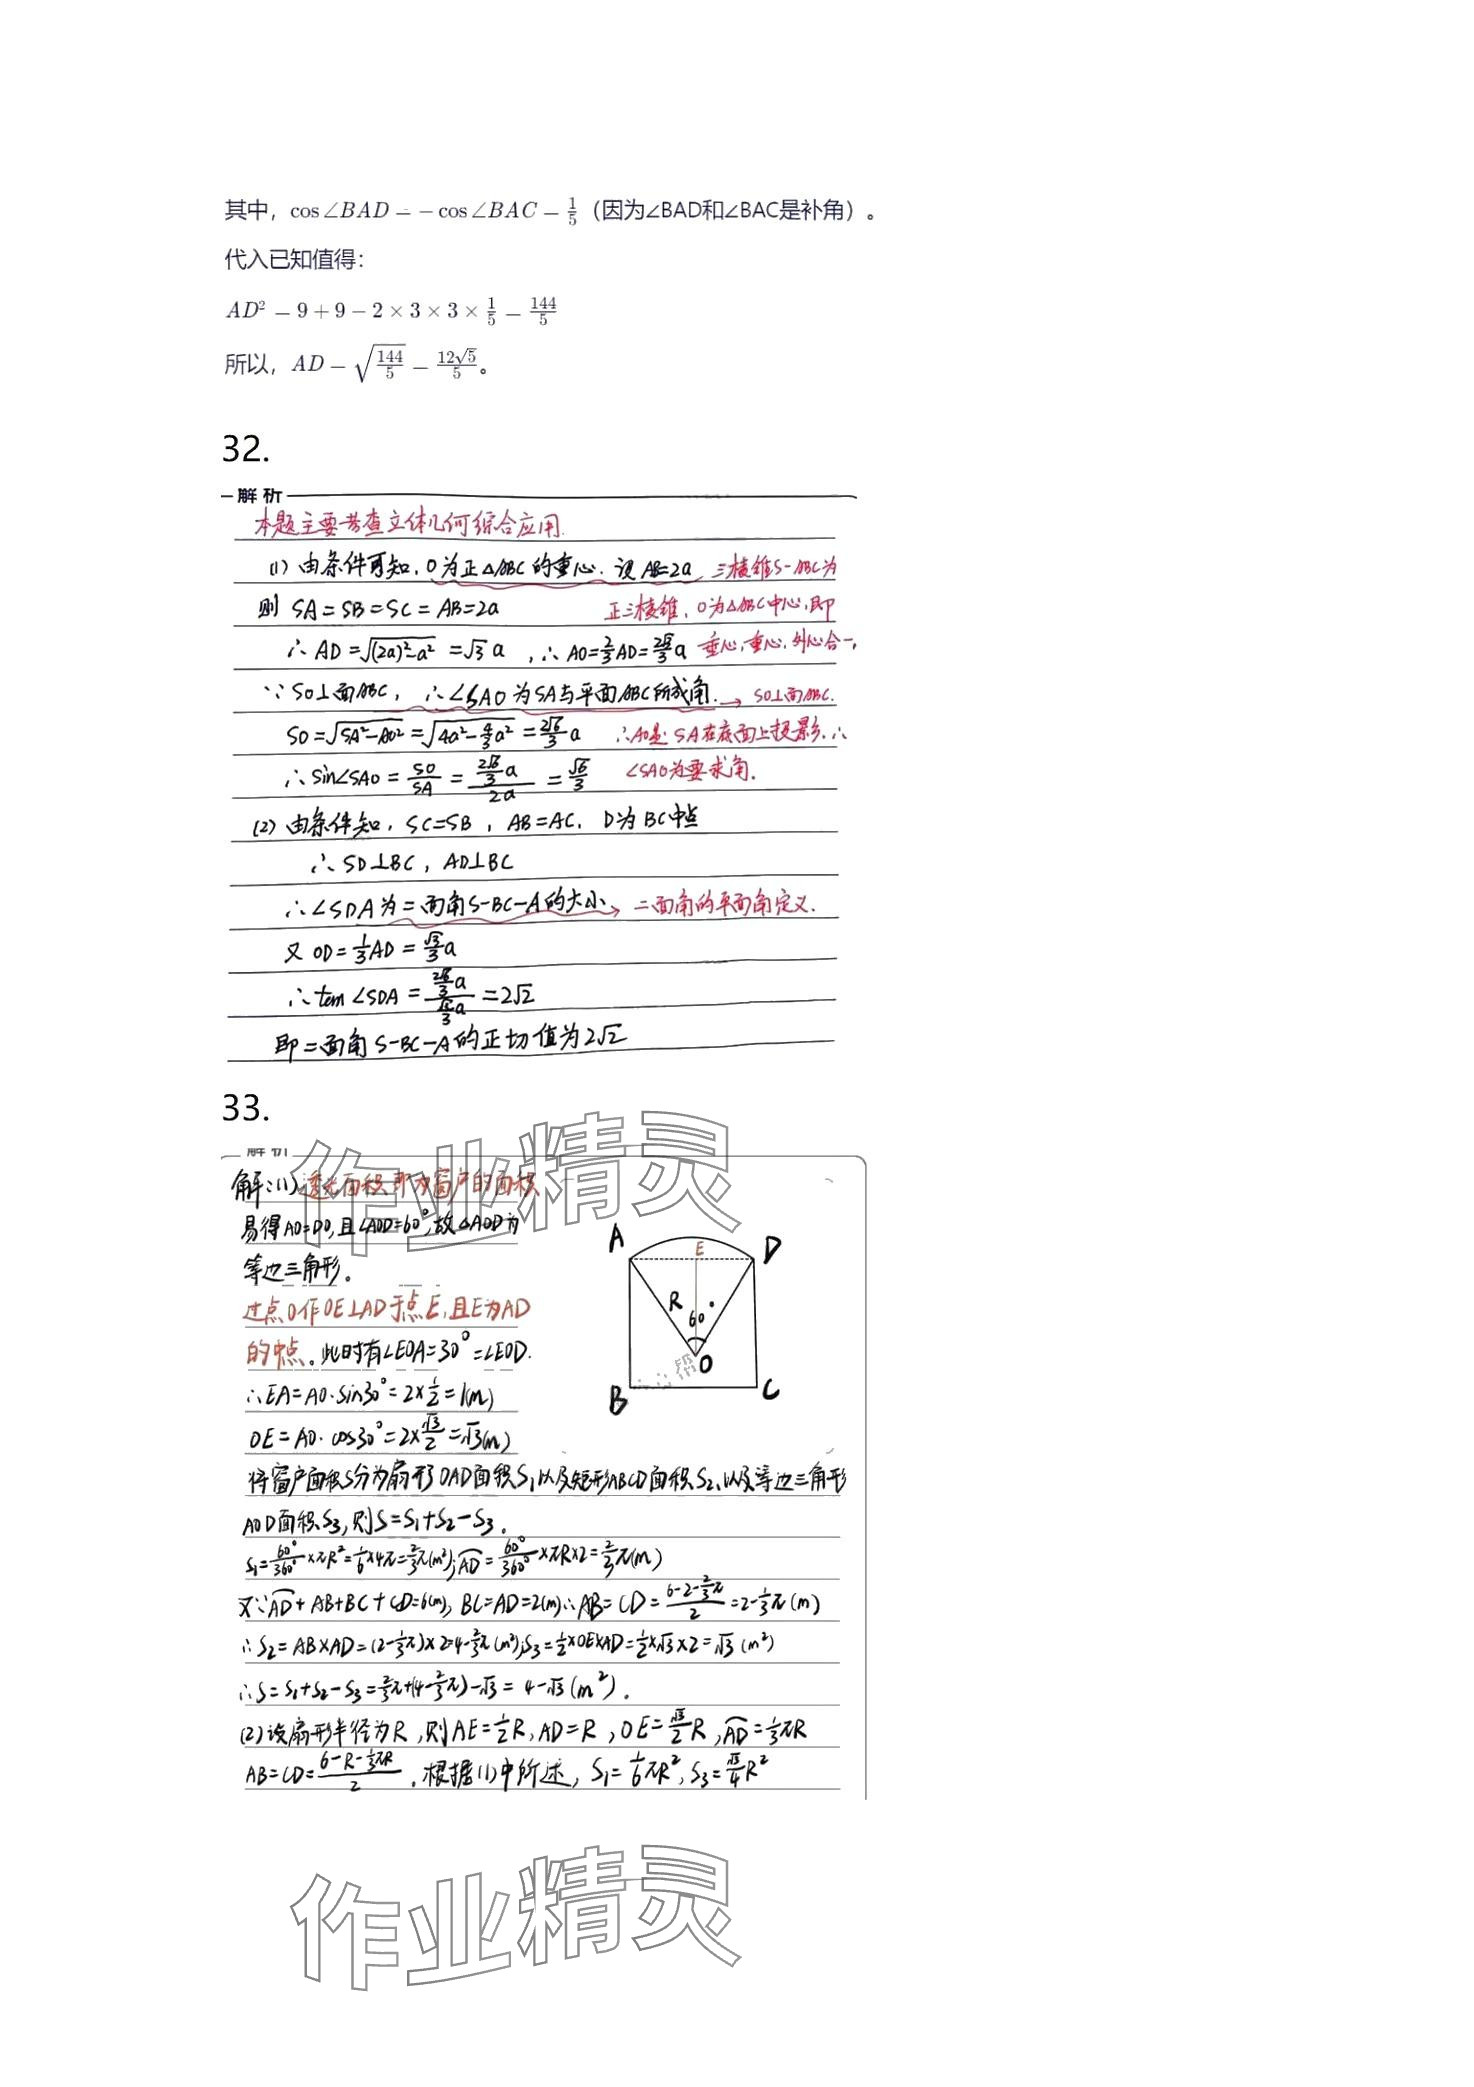 其中，cos∠BAD = −cos∠BAC = 1/5（因为∠BAD和∠BAC是补角）。
代入已知值得：
AD² = 9 + 9 − 2 × 3 × 3 × 1/5 = 144/5
所以，AD = √(144/5) = 12√5/5。
32.
解析
本题主要考查立体几何综合应用.
(1) 由条件可知，O为正△ABC的重心. 设AB=2a 三棱锥S-ABC为
则 SA=SB=SC=AB=2a 正三棱锥，O为△ABC中心，即
∴AD=√((2a)²-a²)=√3a，∴AO=2/3AD=2√3/3a 垂心，重心，外心合一，
∵SO⊥面ABC，∴∠SAO为SA与平面ABC所成角.→ SO⊥面ABC.
SO=√(SA²-AO²)=√(4a²-4/3a²)=2√6/3a ∴AO是SA在底面上投影.∴
∴sin∠SAO=SO/SA=(2√6/3a)/2a=√6/3 ∠SAO为要求角.
(2) 由条件知，SC=SB，AB=AC，D为BC中点
∴SD⊥BC，AD⊥BC
∴∠SDA为二面角S-BC-A的大小→ 二面角的平面角定义.
又OD=1/3AD=√3/3a
∴tan∠SDA=(2√6/3a)/(√3/3a)=2√2
即二面角S-BC-A的正切值为2√2
33.
解析
解:(1)透光面积即为窗户的面积
易得AO=DO,且∠AOD=60°,故△AOD为
等边三角形。
过点O作OE⊥AD于点E,且E为AD
的中点。此时有∠EOA=30°=∠EOD.
∴EA=AO·sin30°=2×1/2=1(m)
OE=AO·cos30°=2×√3/2=√3(m)
A E D
R 60°
O
B C
将窗户面积S分为扇形OAD面积S₁以及矩形ABCD面积S₂、以及等边三角形
AOD面积S₃,则S=S₁+S₂-S₃.
S₁=60°/360°×πR²=1/6×4π=2/3π(m²);AD⌒=60°/360°×πR×2=2/3π(m)
又∵AD⌒+AB+BC+CD=6(m),BC=AD=2(m)∴AB=CD=(6-2-2/3π)/2=2-1/3π(m)
∴S₂=AB×AD=(2-1/3π)×2=4-2/3π(m²);S₃=1/2×OE×AD=1/2×√3×2=√3(m²)
∴S=S₁+S₂-S₃=2/3π+(4-2/3π)-√3=4-√3(m²).
(2)设扇形半径为R,则AE=1/2R,AD=R,OE=√3/2R,AD⌒=1/3πR
AB=CD=(6-R-1/3πR)/2.根据(1)中所述,S₁=1/6πR²,S₃=√3/4R²
作业精灵
作业精灵